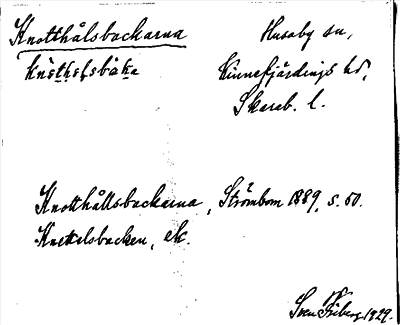 Knotthålsbackarna Husaby sn,
Kinnefjärdings hd,
Skarab. l.
Knotthållsbackarna, Strömbom 1889, s. 50.
Knettelsbacken, ek.
Sven Friberg 1929.